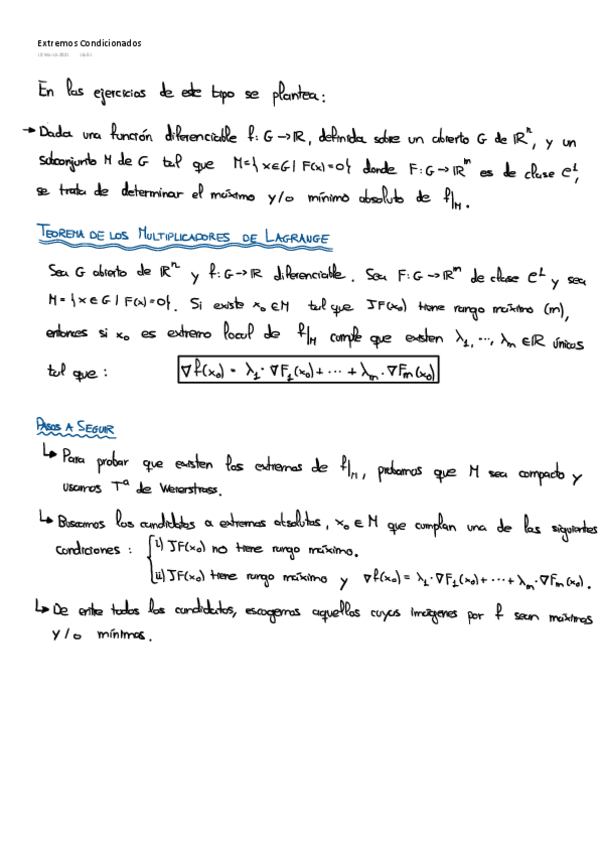 Extremos Condicionados
En los ejercicios de este tipo se plantea:
→ Dada una función diferenciable f: G → ℝ, definida sobre un abierto G de ℝⁿ, y un
subconjunto M de G tal que M = {x ∈ G / F(x) = 0} donde F: G → ℝᵐ es de clase C¹,
se trata de determinar el máximo y/o mínimo absoluto de f|M.
TEOREMA DE LOS MULTIPLICADORES DE LAGRANGE
Sea G abierto de ℝⁿ y f: G → ℝ diferenciable. Sea F: G → ℝᵐ de clase C¹ y sea
M = {x ∈ G / F(x) = 0}. Si existe x₀ ∈ M tal que JF(x₀) tiene rango máximo (m),
entonces si x₀ es extremo local de f|M cumple que existen λ₁, ..., λm ∈ ℝ únicos
tal que: ∇f(x₀) = λ₁·∇F₁(x₀) + ... + λm·∇Fm(x₀)
PASOS A SEGUIR
↳ Para probar que existen los extremos de f|M, probamos que M sea compacto y
usamos Tª de Weierstrass.
↳ Buscamos los candidatos a extremos absolutos, x₀ ∈ M que cumplan una de las siguientes
condiciones: { i) JF(x₀) no tiene rango máximo.
ii) JF(x₀) tiene rango máximo y ∇f(x₀) = λ₁·∇F₁(x₀) + ... + λm·∇Fm(x₀).
↳ De entre todos los candidatos, escogemos aquellos cuyas imágenes por f sean máximas
y/o mínimas.